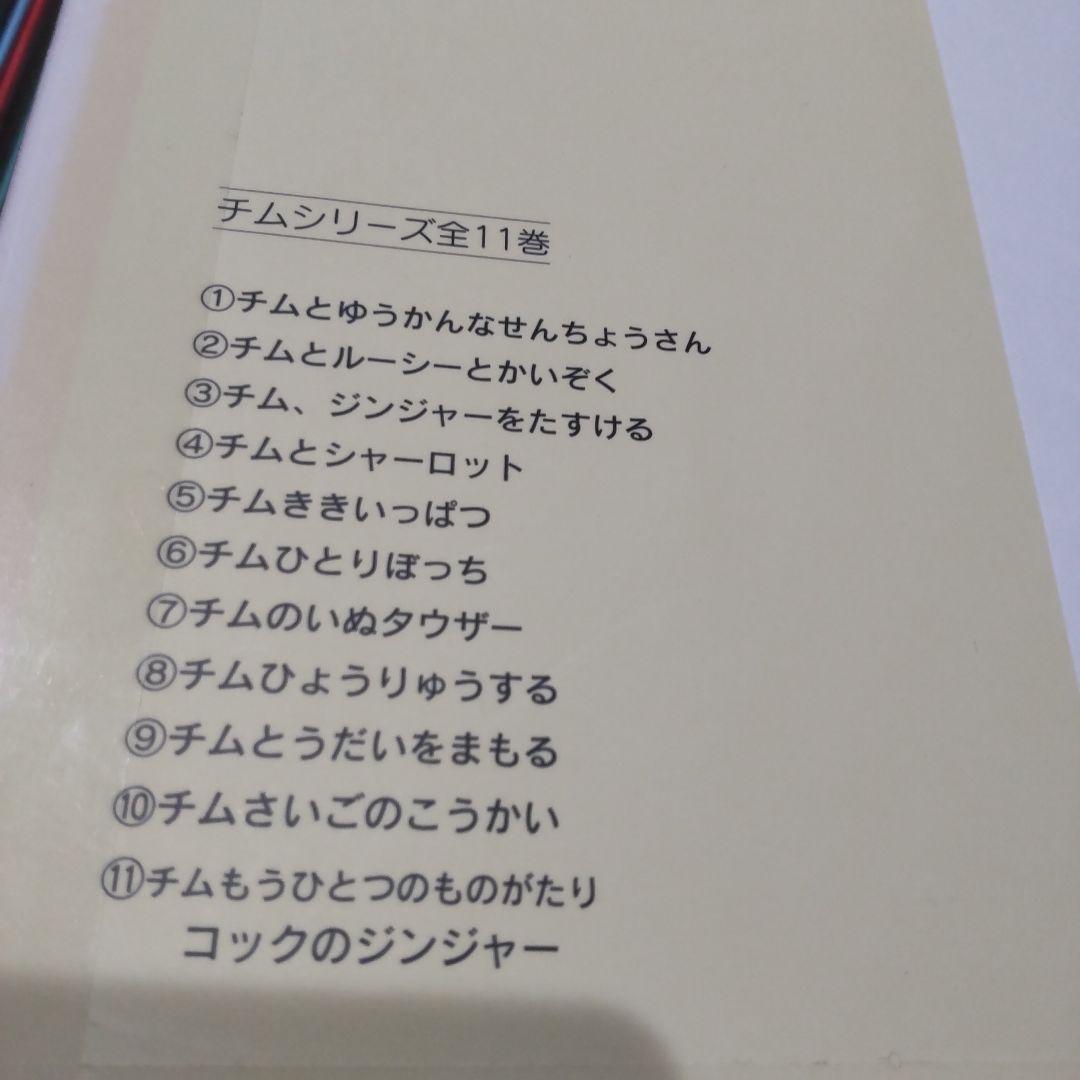 チムシリーズ全11巻
①チムとゆうかんなせんちょうさん
②チムとルーシーとかいぞく
③チム、ジンジャーをたすける
④チムとシャーロット
⑤チムききいっぱつ
⑥チムひとりぼっち
⑦チムのいぬタウザー
⑧チムひょうりゅうする
⑨チムとうだいをまもる
⑩チムさいごのこうかい
⑪チムもうひとつのものがたり
コックのジンジャー